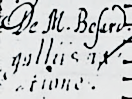 De M. Besard.
galliis
tione.